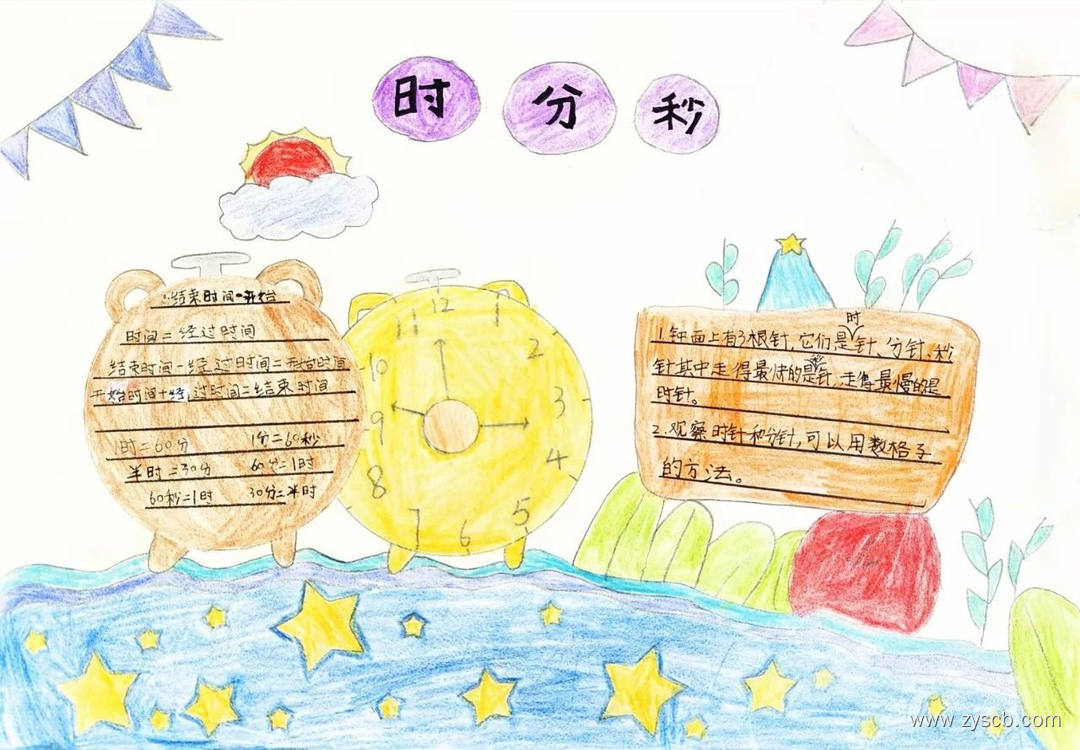 时 分 秒
结束时间-开始
时间=经过时间
结束时间-经过时间=开始时间
开始时间+经过时间=结束时间
1时=60分 1分=60秒
半时=30分 60分=1时
60秒=1时 30分=半时
12
11 1
10 2
9 3
8 4
7 6 5
时
1.钟面上有3根针,它们是针、分针、秒
针其中走得最快的是针,走得最慢的是
时针。
2.观察时针和分针,可以用数格子
的方法。
www.zyscb.com